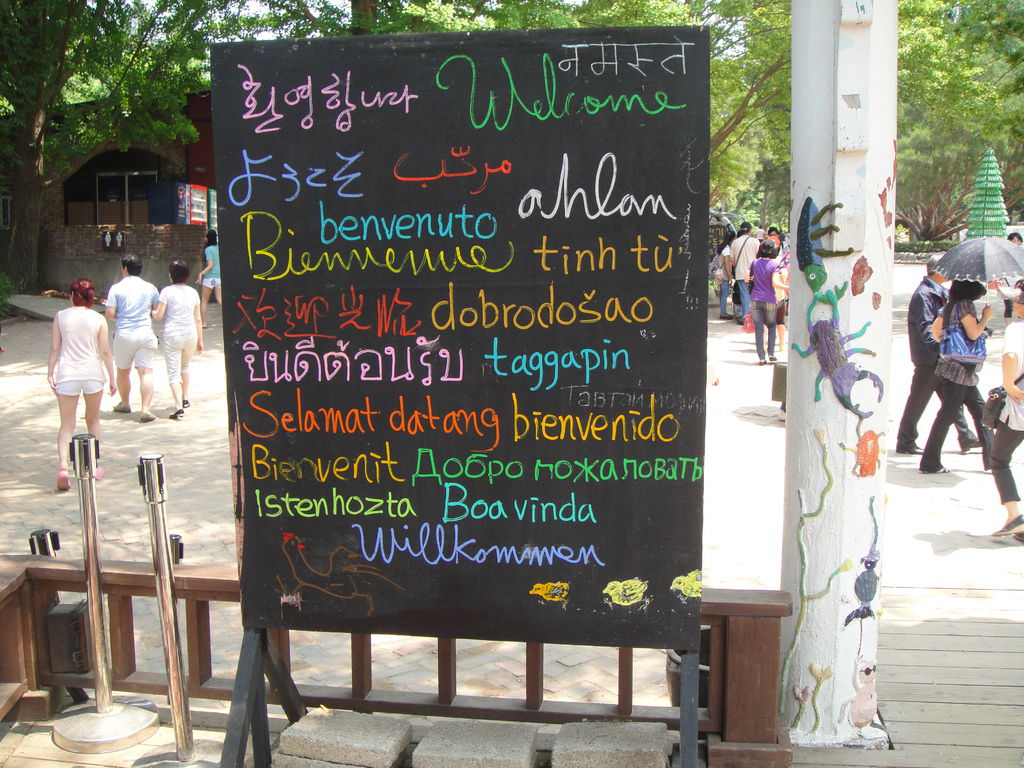 नमस्ते
환영합니다 Welcome
ようこそ مرحب ahlan
benvenuto
Bienvenue tinh tù
欢迎光临 dobrodošao
ยินดีต้อนรับ taggapin
Selamat datang bienvenido
Bienvenit Добро пожаловать
Istenhozta Boa vinda
Willkommen